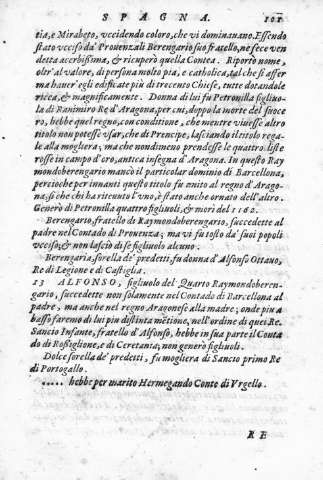 SPAGNA. 101
tia, e Mirabeto, uccidendo coloro, che vi dominauano. Essendo
stato ucciso da' Prouenzali Berengario suo fratello, ne fece ven
detta acerbissima, & ricuperò quella Contea. Riportò nome,
oltr'al valore, di persona molto pia, e catholica, tal che si affer
ma hauer' egli edificate piu di trecento Chiese, tutte dotandole
ricca, & magnificamente. Donna di lui fu Petronilla figliuo
la di Ranimiro Re d'Aragona, per cui, doppo la morte del suoce
ro, hebbe quel regno, con conditione, che mentre viuesse altro
titolo non potesse vsar, che di Prencipe, lasciando il titolo rega
le alla mogliera; ma che nondimeno prendesse le quattro liste
rosse in campo d'oro, antica insegna d'Aragona. In questo Ray
mondoberengario mancò il particolar dominio di Barcellona,
percioche per innanti questo titolo fu vnito al regno d'Arago-
na, si che chi ha ritenuto l'vno, è stato anche ornato dell'altro.
Generò di Petronilla quattro figliuoli, & morì del 1162.
Berengario, fratello di Raymondoberengario, succedette al
padre nel Contado di Prouenza; ma vi fu tosto da' suoi popoli
vcciso; & non lasciò di se figliuolo alcuno.
Berengaria, sorella de' predetti, fu donna d'Alfonso Ottauo,
Re di Legione e di Castiglia.
13 ALFONSO, figliuolo del Quarto Raymondoberen-
gario, succedette non solamente nel Contado di Barcellona al
padre, ma anche nel regno Aragonese alla madre; onde piu a
basso faremo di lui piu distinta mētione, nell'ordine di quei Re.
Sancio Infante, fratello d'Alfonso, hebbe in sua parte il Conta
do di Rossiglione, e di Ceretania; non generò figliuoli.
Dolce sorella de' predetti, fu mogliera di Sancio primo Re
di Portogallo.
..... hebbe per marito Hermegando Conte di Vrgello.
RE